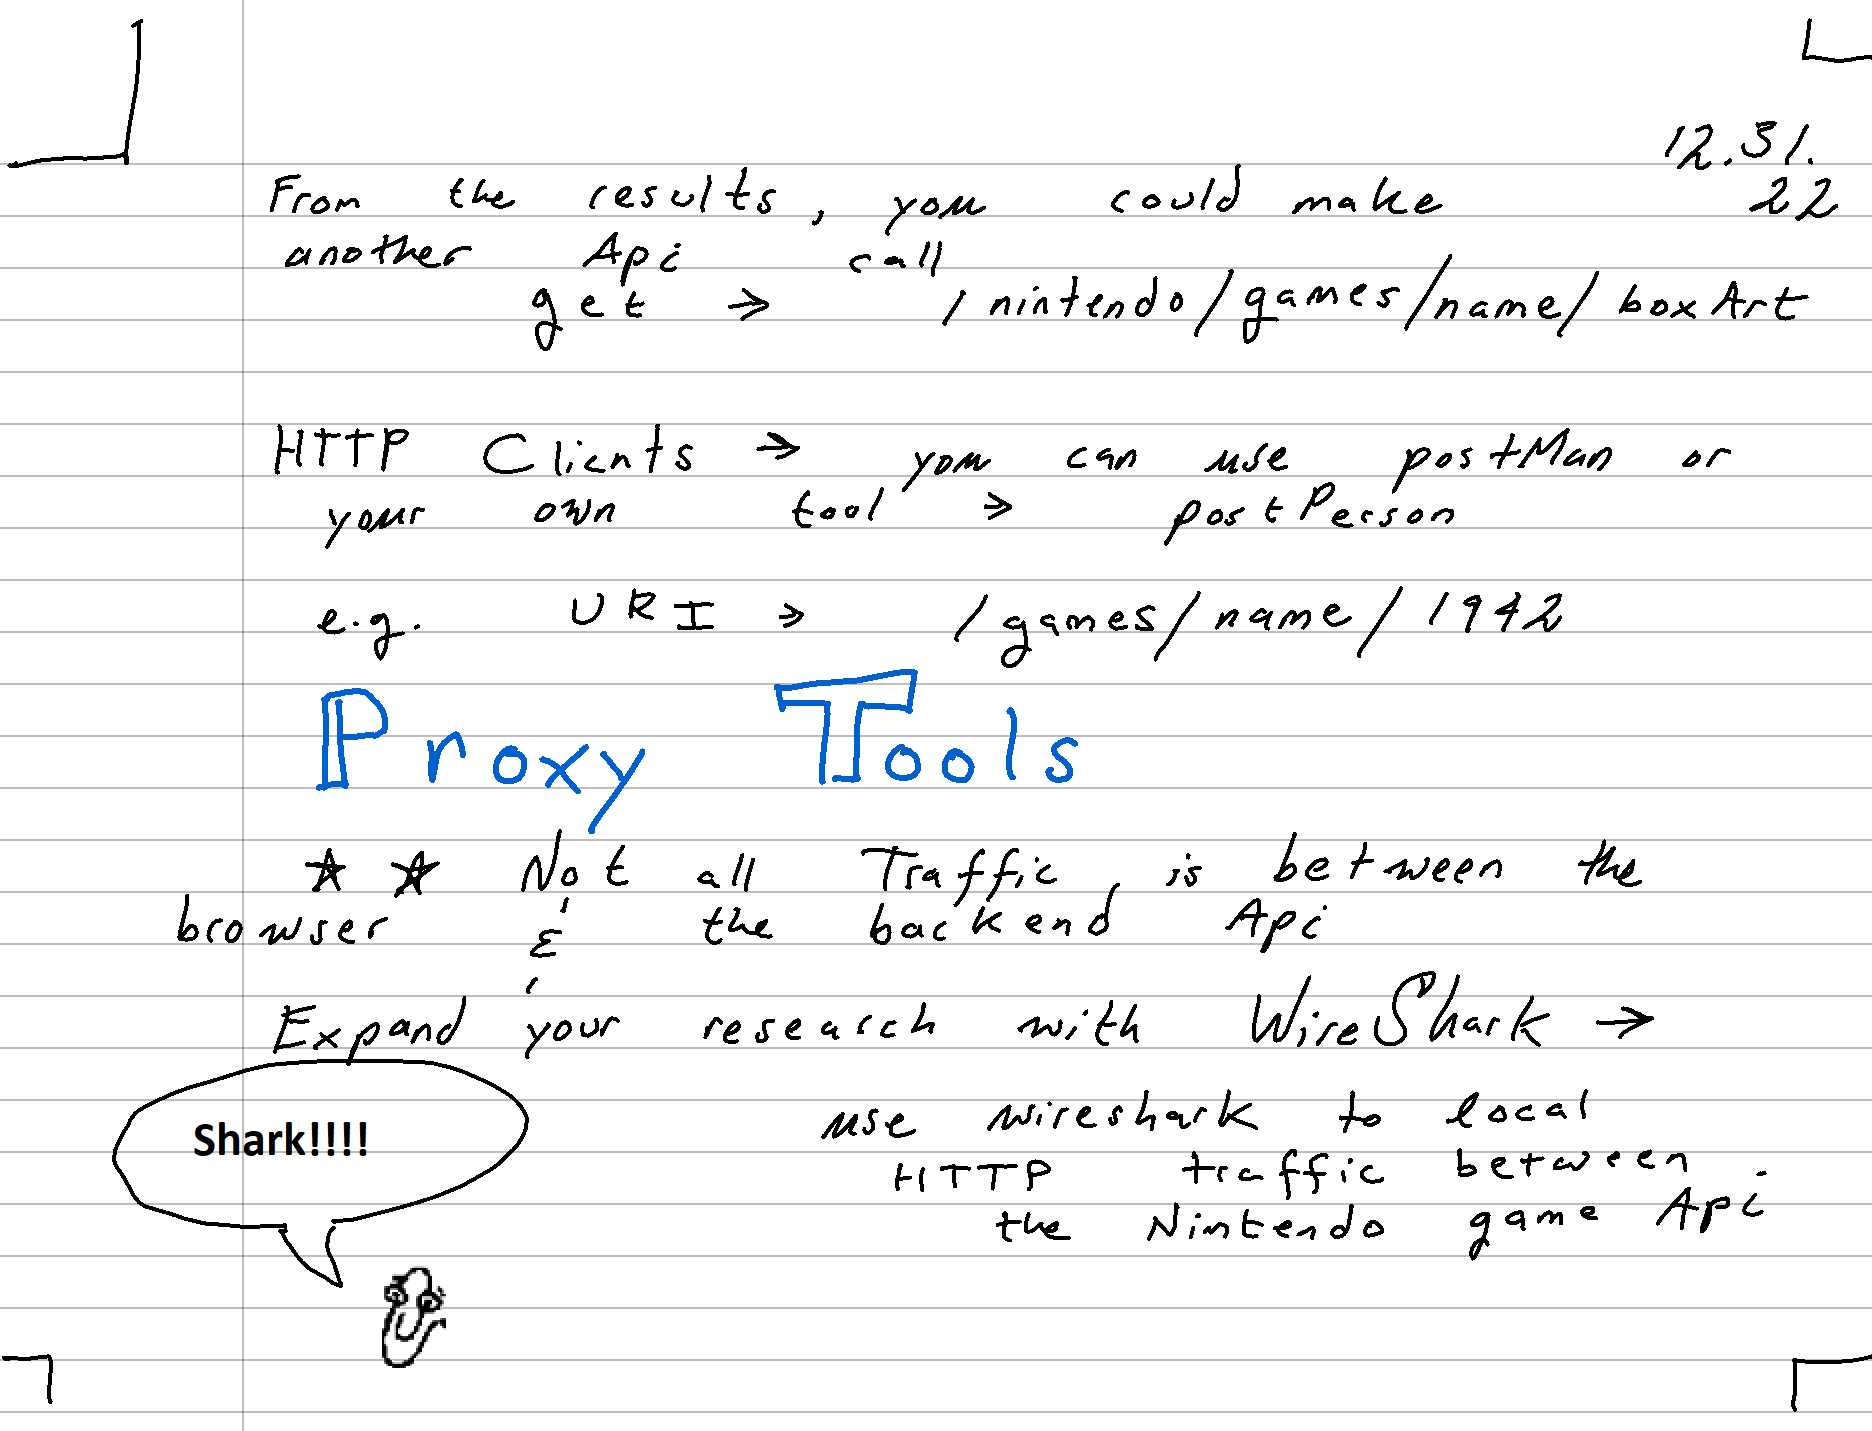 12.31.
22
From the results, you could make
another Api call
get → /nintendo/games/name/boxArt
HTTP Clients → you can use postMan or
your own tool → postPerson
e.g. URI → /games/name/1942
Proxy Tools
☆ ☆ Not all Traffic is between the
browser & the backend Api
Expand your research with WireShark →
use wireshark to local
HTTP traffic between
the Nintendo game Api
Shark!!!!